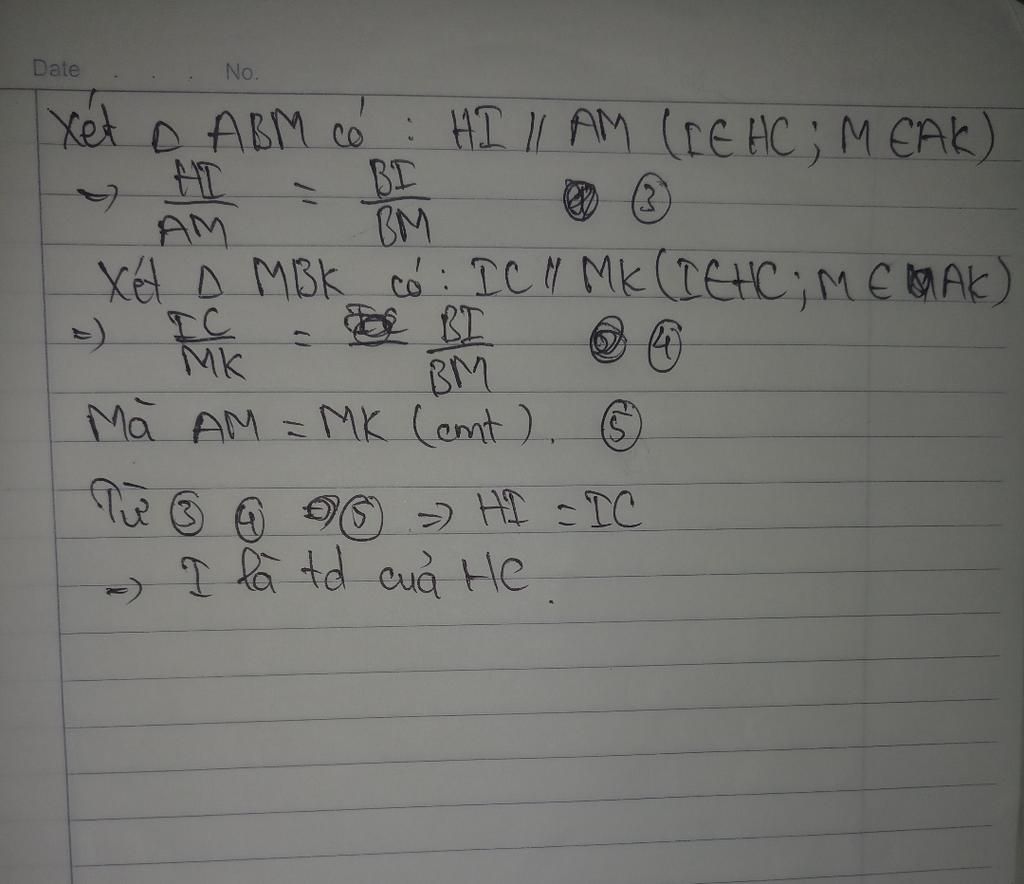 Date . . . No.
Xét Δ ABM có : HI // AM (I∈HC ; M∈AK)
=> HI/AM = BI/BM ③
Xét Δ MBK có : IC // MK (I∈HC ; M∈AK)
=> IC/MK = BI/BM ④
Mà AM = MK (cmt). ⑤
Từ ③ ④ ⑤ => HI = IC
=> I là td cuả HC.